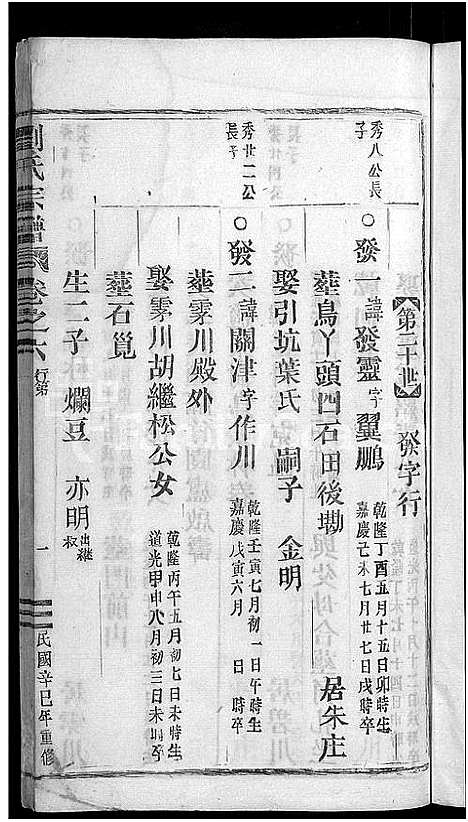 第三十世 發字行
秀八公長子
○發一 諱發靈 字翼鵬 乾隆丁酉五月十五日卯時生 嘉慶己未七月廿七日戌時卒
葬烏丫頭四石田後墈 居朱庄
娶引坑葉氏 嗣子 金明
秀廿二公長子
○發二 諱關津 字作川 乾隆壬寅七月初一日午時生 嘉慶戊寅六月 日 時卒
葬雩川殿外
娶雩川胡繼松公女 乾隆丙午五月初七日未時生 道光甲申八月初三日未時卒
葬石筧
生二子 爛豆 亦明 出繼叔
劉氏宗譜 卷之六 行第 一 民國辛巳年重修